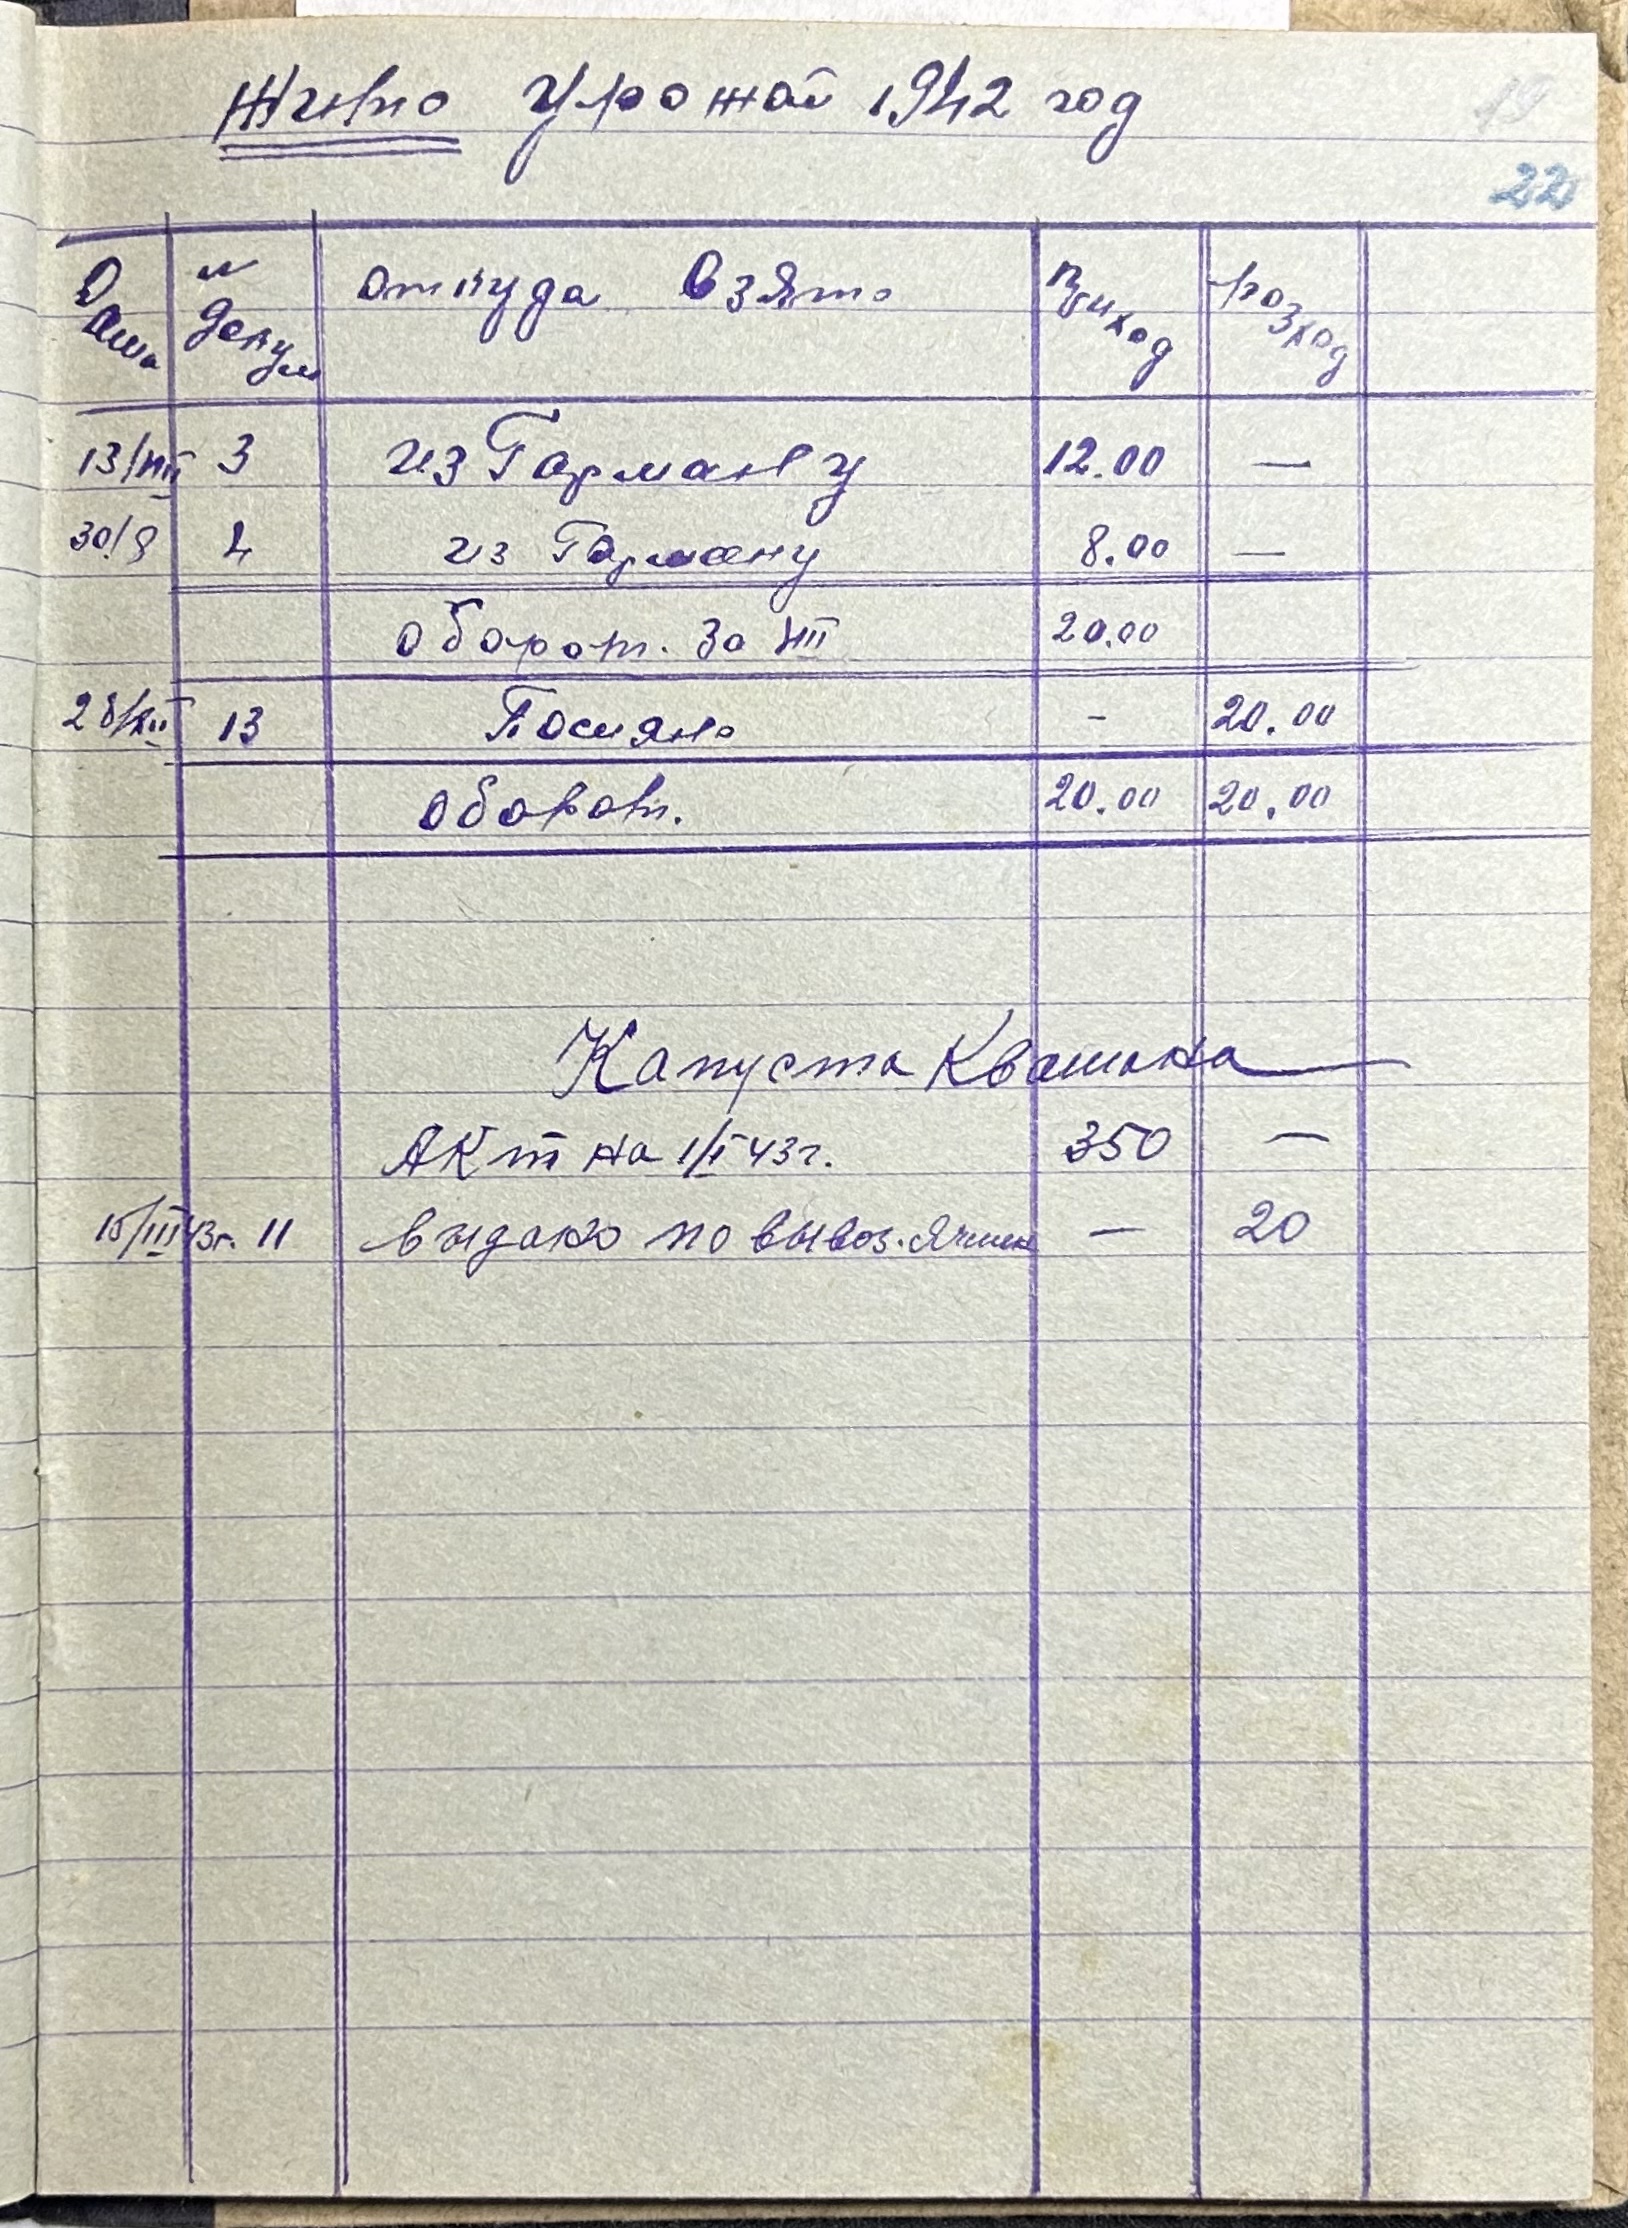 Жито Урожай 1942 год
19
22
Дата № докум откуда взято приход розход
13/VIII 3 из Гарману 12.00 —
30/8 4 из Гарману 8.00 —
оборот. за VIII 20.00
28/XII 13 Посияно - 20.00
оборот. 20.00 20.00
Капуста Квашена
Акт на 1/I 43г. 350 —
15/III 43г. 11 выдано по вывоз. — 20